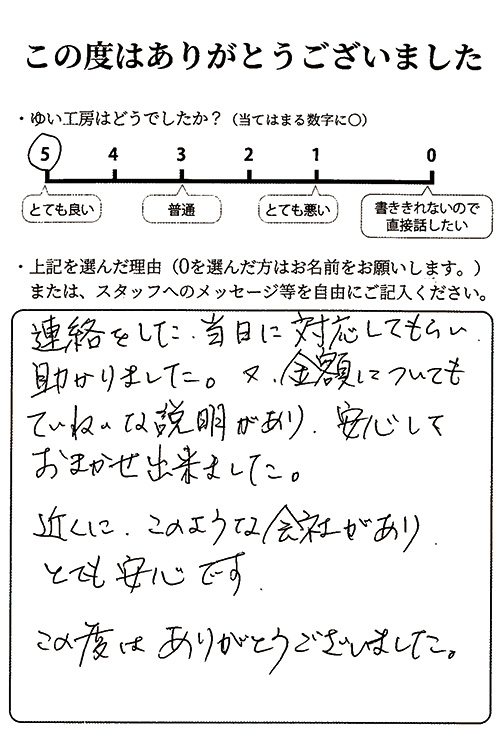 この度はありがとうございました
・ゆい工房はどうでしたか？（当てはまる数字に〇）
5 4 3 2 1 0
とても良い 普通 とても悪い 書ききれないので
直接話したい
・上記を選んだ理由（0を選んだ方はお名前をお願いします。）
または、スタッフへのメッセージ等を自由にご記入ください。
連絡をした、当日に対応してもらい、
助かりました。又、金額についても
ていねいな説明があり、安心して
おまかせ出来ました。
近くに、このような会社があり、
とても安心です。
この度はありがとうございました。